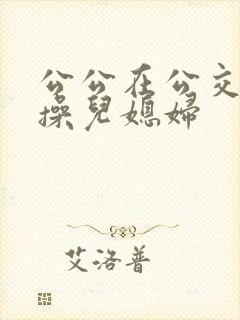 公公在公交
操兒媳婦
艾洛普